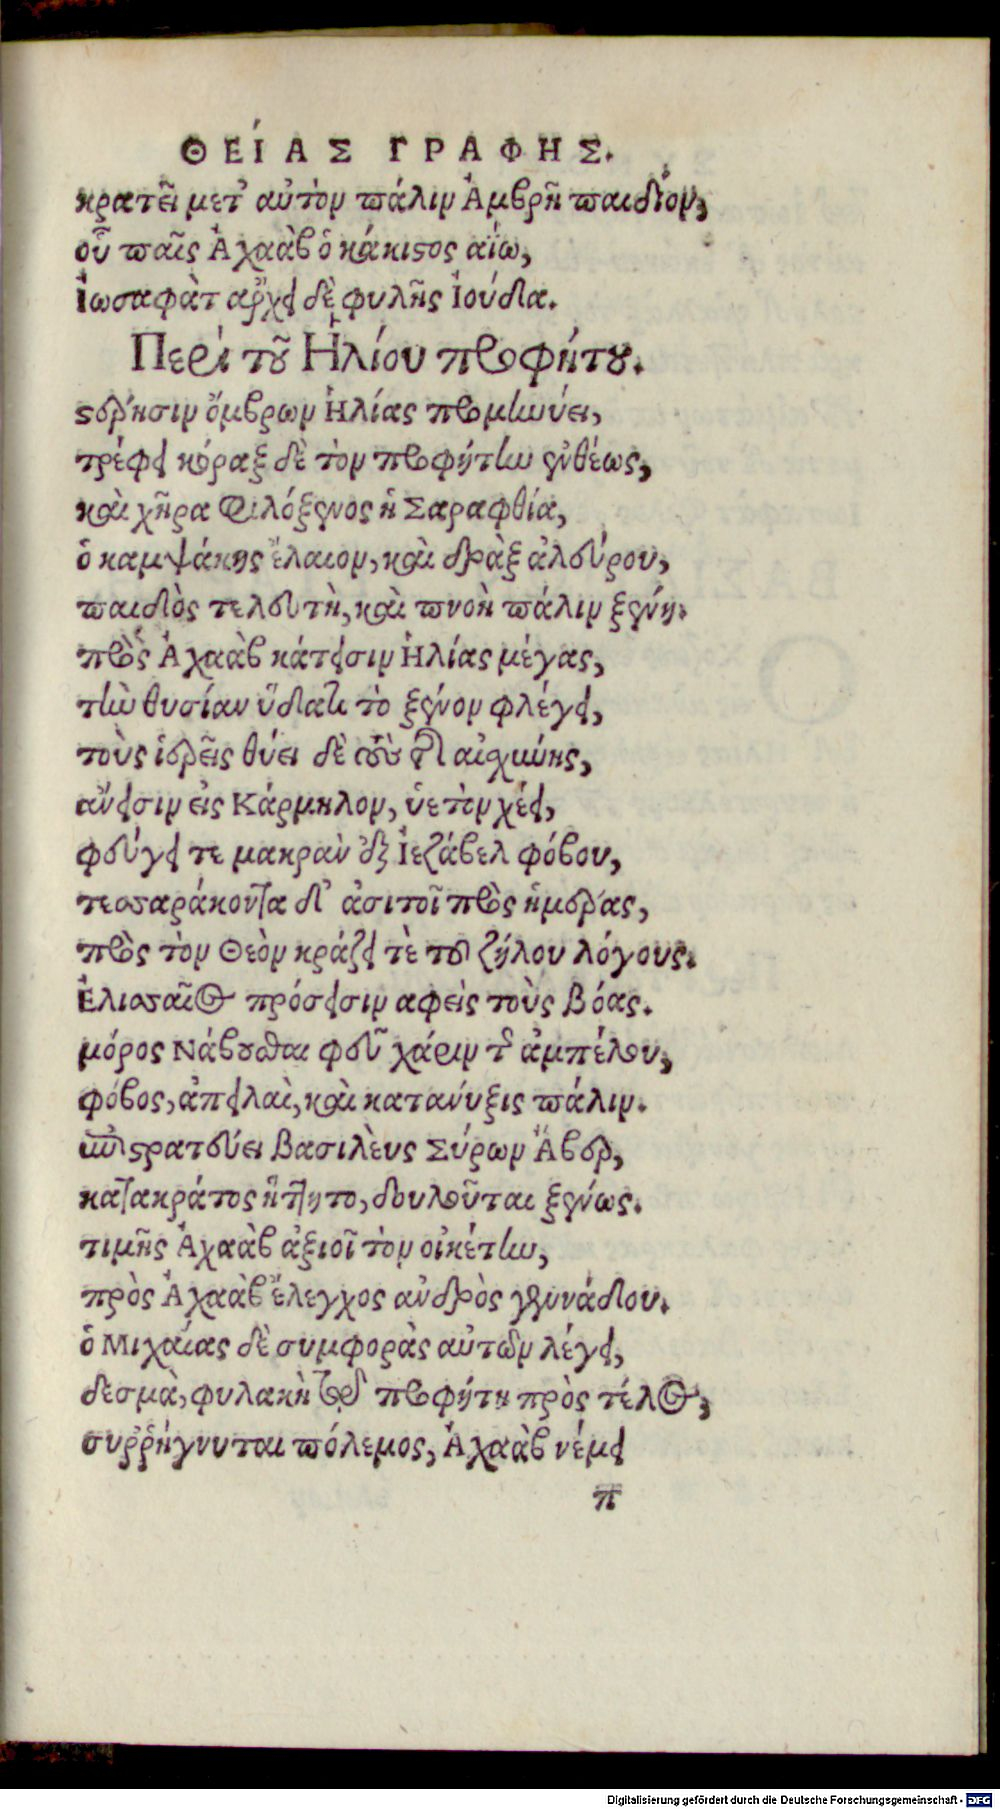 ΘΕΊΑΣ ΓΡΑΦΗΣ.
κρατεῖ μετ' αὐτὸν πάλιν Ἀμβρῆ παιδίον,
οὗ παῖς Ἀχαὰβ ὁ κάκιστος αἴω,
Ἰωσαφὰτ ἄρχει δὲ φυλῆς Ἰούδα.
Περὶ τοῦ Ἠλίου προφήτου.
στέρησιν ὄμβρων Ἠλίας προμηνύει,
τρέφει κόραξ δὲ τὸν προφήτην ἐνθέως,
καὶ χῆρα Φιλόξενος ἡ Σαραφθία,
ὁ καμψάκης ἔλαιον, καὶ δρὰξ ἀλεύρου,
παιδὸς τελευτὴ, καὶ πνοὴ πάλιν ξένη.
πρὸς Ἀχαὰβ κάτεισιν Ἠλίας μέγας,
τὴν θυσίαν ὕδατι τὸ ξένον φλέγει,
τοὺς ἱερεῖς θύει δὲ τοὺς τῆς αἰσχύνης,
ἄνεισιν εἰς Κάρμηλον, ὑετὸν χέει,
φεύγει τε μακρὰν ἐξ Ἰεζάβελ φόβου,
τεσσαράκοντα δ' ἀσιτοῖ πρὸς ἡμέρας,
πρὸς τὸν Θεὸν κράζει τὲ τοῦ ζήλου λόγους.
Ἐλισσαῖος πρόσεισιν αφεὶς τοὺς βόας.
μόρος Νάβουθαι φεῦ χάριν τῆς ἀμπέλου,
φόβος, ἀπειλαὶ, καὶ κατανύξις πάλιν.
ἐπιστρατεύει βασιλεὺς Σύρων Ἄβερ,
κατακράτος ἥττητο, δουλοῦται ξένως.
τιμῆς Ἀχαὰβ ἀξιοῖ τὸν οἰκέτην,
πρὸς Ἀχαὰβ ἔλεγχος ἀνδρὸς γεννάδου.
ὁ Μιχαίας δὲ συμφορὰς αὐτῶν λέγει,
δεσμὰ, φυλακὴ τῷ προφήτῃ πρὸς τέλος,
συῤῥήγνυται πόλεμος, Ἀχαὰβ νέμει
π
Digitalisierung gefördert durch die Deutsche Forschungsgemeinschaft - DFG